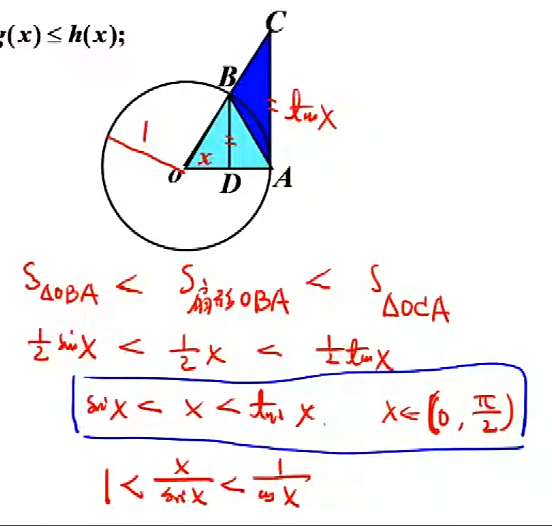 g(x) ≤ h(x);
C
B
= tan x
1
x
=
O D A
S△OBA < S扇形OBA < S△OCA
1/2 sin x < 1/2 x < 1/2 tan x
sin x < x < tan x. x∈(0, π/2)
1 < x/sin x < 1/cos x